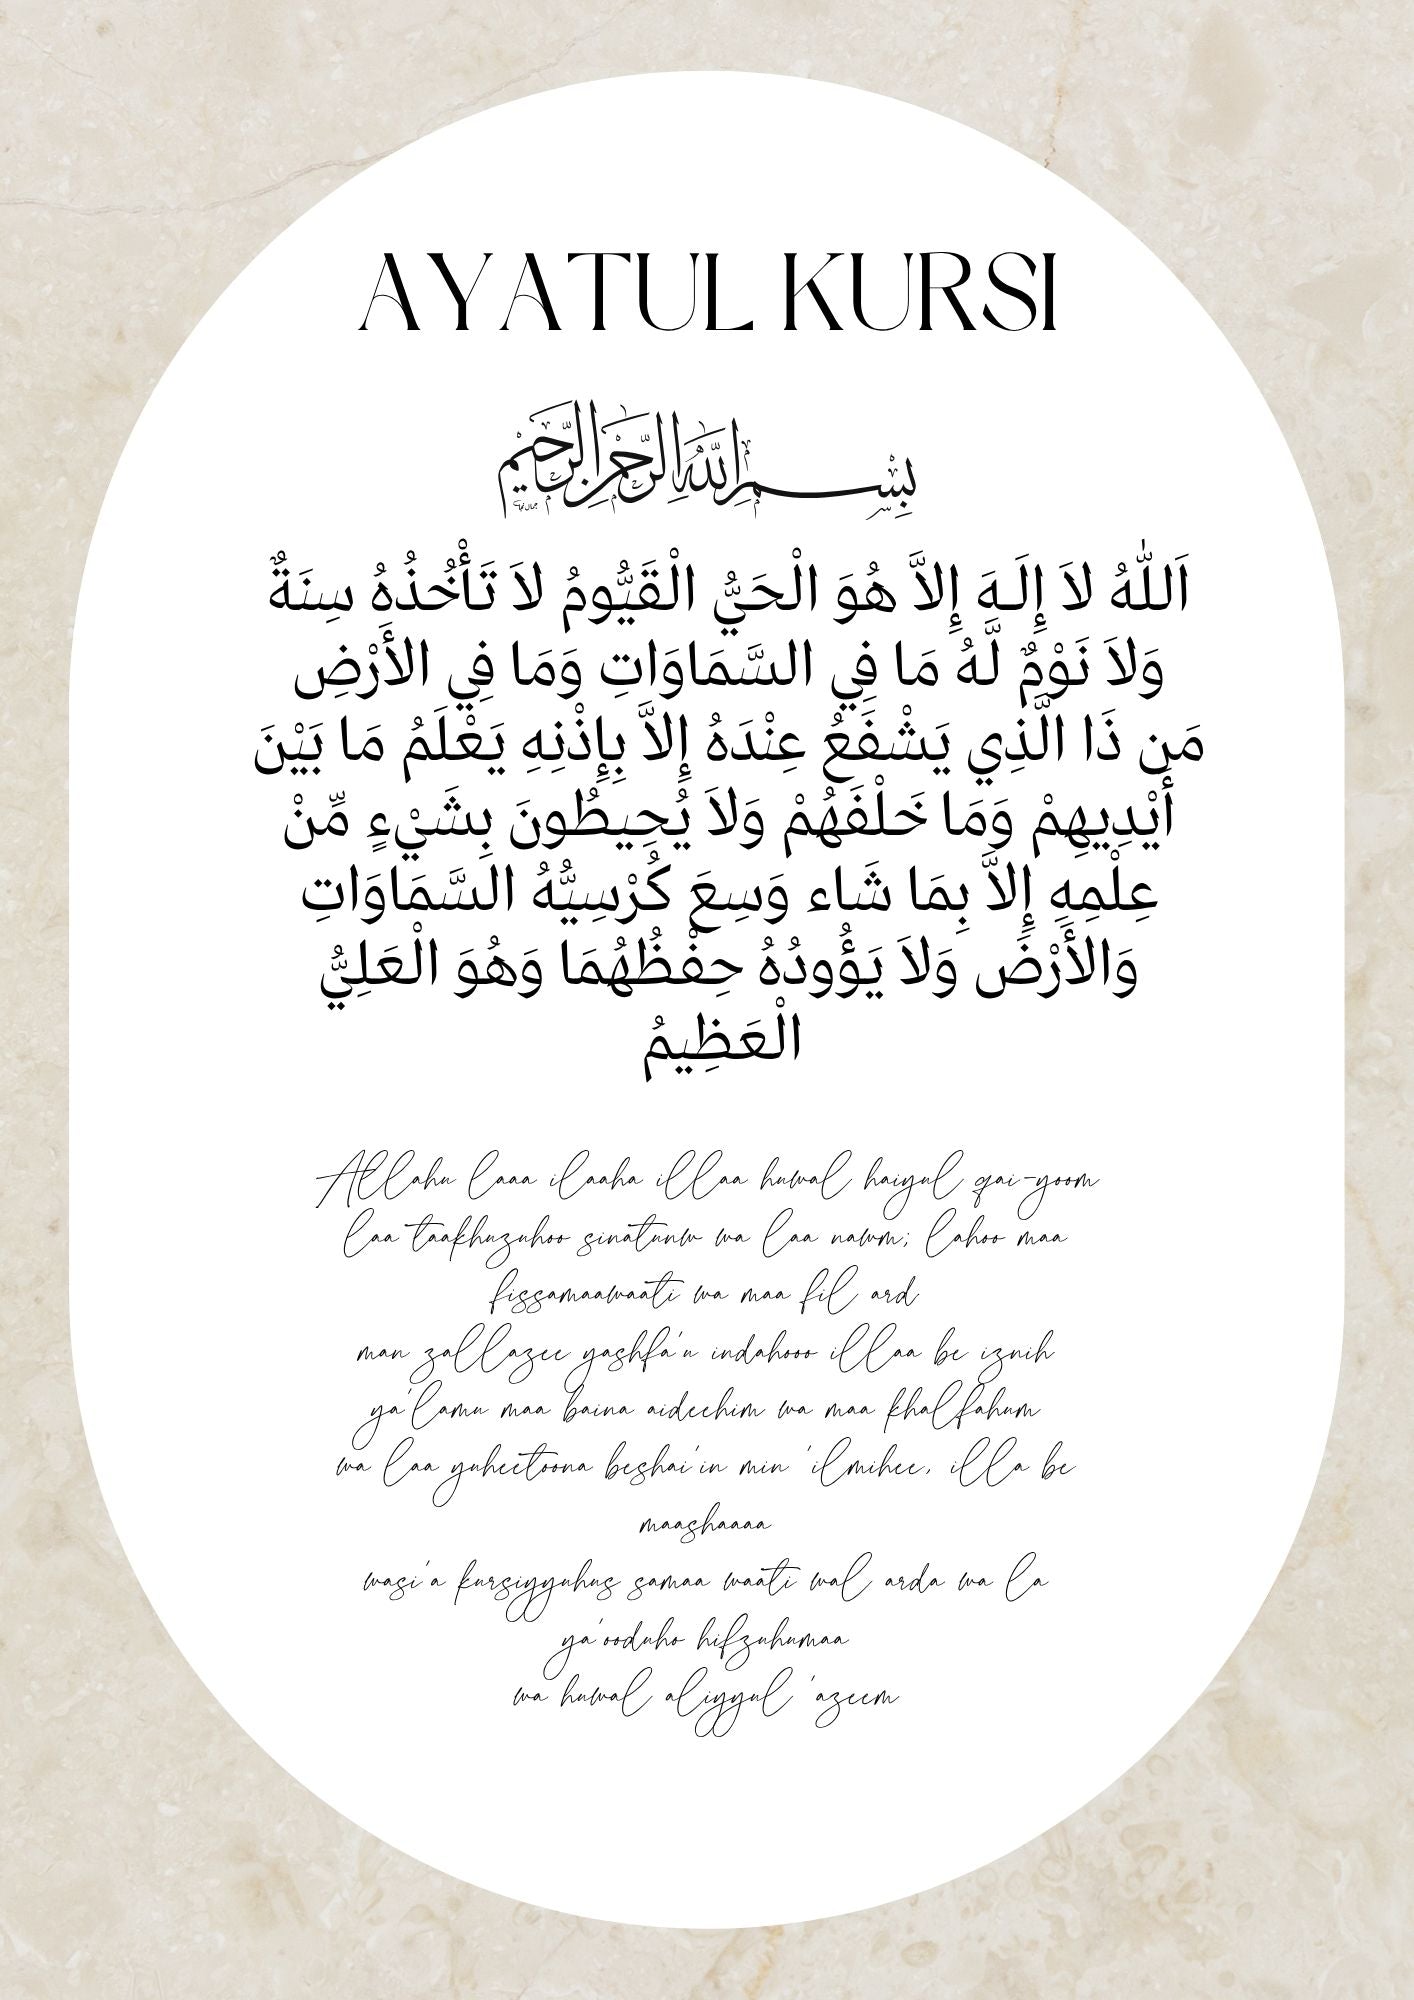 AYATUL KURSI
بِسْمِ اللَّهِ الرَّحْمَٰنِ الرَّحِيمِ
اَللّهُ لاَ إِلَـهَ إِلاَّ هُوَ الْحَيُّ الْقَيُّومُ لاَ تَأْخُذُهُ سِنَةٌ
وَلاَ نَوْمٌ لَّهُ مَا فِي السَّمَاوَاتِ وَمَا فِي الأَرْضِ
مَن ذَا الَّذِي يَشْفَعُ عِنْدَهُ إِلاَّ بِإِذْنِهِ يَعْلَمُ مَا بَيْنَ
أَيْدِيهِمْ وَمَا خَلْفَهُمْ وَلاَ يُحِيطُونَ بِشَيْءٍ مِّنْ
عِلْمِهِ إِلاَّ بِمَا شَاء وَسِعَ كُرْسِيُّهُ السَّمَاوَاتِ
وَالأَرْضَ وَلاَ يَؤُودُهُ حِفْظُهُمَا وَهُوَ الْعَلِيُّ
الْعَظِيمُ
Allahu laaa ilaaha illaa huwal haiyul qai-yoom
laa taakhuzuhoo sinatunw wa laa nawm; lahoo maa
fissamaawaati wa maa fil ard
man zallazee yashfa'u indahooo illaa be iznih
ya'lamu maa baina aideehim wa maa khalfahum
wa laa yuheetoona beshai'in min 'ilmihee, illa be
maashaaaa
wasi'a kursiyyuhus samaa waati wal arda wa la
ya'ooduho hifzuhumaa
wa huwal aliyyul 'azeem